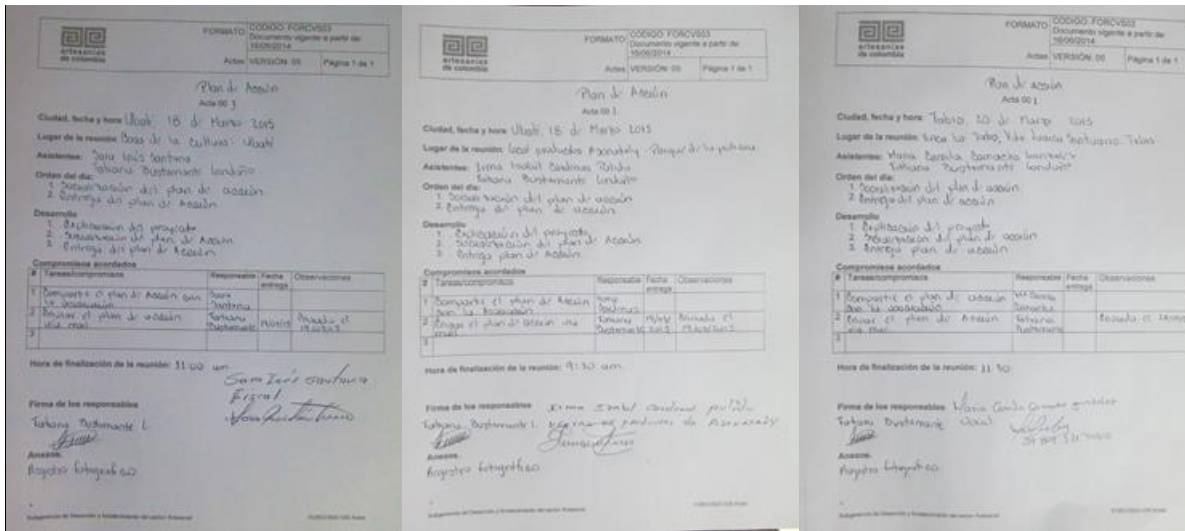 artesanías
de colombia
FORMATO
CODIGO: FORCVS03
Documento vigente a partir de:
16/06/2014
Actas
VERSIÓN: 05
Página 1 de 1
Plan de Acción
Acta 00 1
Ciudad, fecha y hora Ubaté, 18 de Marzo 2015
Lugar de la reunión Casa de la Cultura - Ubaté
Asistentes: Sara Inés Santana
Tatiana Bustamante Londoño
Orden del día:
1. Socialización del plan de acción
2. Entrega del plan de Acción
Desarrollo
1. Explicación del proyecto
2. Socialización del plan de Acción
3. Entrega del plan de Acción
Compromisos acordados
# Tareas/compromisos Responsable Fecha entrega Observaciones
1 Compartir el plan de Acción con la asociación Sara Santana
2 Enviar el plan de acción vía mail Tatiana Bustamante Enviado el
3
Hora de finalización de la reunión: 11:00 am
Sara Inés Santana
Fiscal
Firma de los responsables
Tatiana Bustamante L
Anexos.
Registro fotográfico
artesanías
de colombia
FORMATO
CODIGO: FORCVS03
Documento vigente a partir de:
16/06/2014
Actas
VERSIÓN: 05
Página 1 de 1
Plan de Acción
Acta 00 1
Ciudad, fecha y hora Ubaté, 18 de Marzo 2015
Lugar de la reunión local productos
Asistentes: Isabel Cárdenas
Tatiana Bustamante Londoño
Orden del día:
1. Socialización del plan de acción
2. Entrega del plan de acción
Desarrollo
1. Explicación del proyecto
2. Socialización del plan de Acción
3. Entrega plan de Acción
Compromisos acordados
# Tareas/compromisos Responsable Fecha entrega Observaciones
1 Compartir el plan de Acción con la Asociación
2 Enviar el plan de acción vía mail Tatiana Bustamante Enviado el
3
Hora de finalización de la reunión: 9:30 am
Firma de los responsables
Tatiana Bustamante L
Anexos.
Registro fotográfico
artesanías
de colombia
FORMATO
CODIGO: FORCVS03
Documento vigente a partir de:
16/06/2014
Actas
VERSIÓN: 05
Página 1 de 1
Plan de acción
Acta 00 1
Ciudad, fecha y hora Tabio, 20 de Marzo 2015
Lugar de la reunión Tabio
Asistentes: María Camila Camacho
Tatiana Bustamante Londoño
Orden del día:
1. Socialización del plan de acción
2. Entrega del plan de acción
Desarrollo
1. Explicación del proyecto
2. Socialización del plan de acción
3. Entrega plan de acción
Compromisos acordados
# Tareas/compromisos Responsable Fecha entrega Observaciones
1 Compartir el plan de acción con la asociación
2 Enviar el plan de Acción vía mail Tatiana Bustamante Enviado el
3
Hora de finalización de la reunión: 11:30
Firma de los responsables María Camila Camacho
Tatiana Bustamante
Anexos.
Registro fotográfico